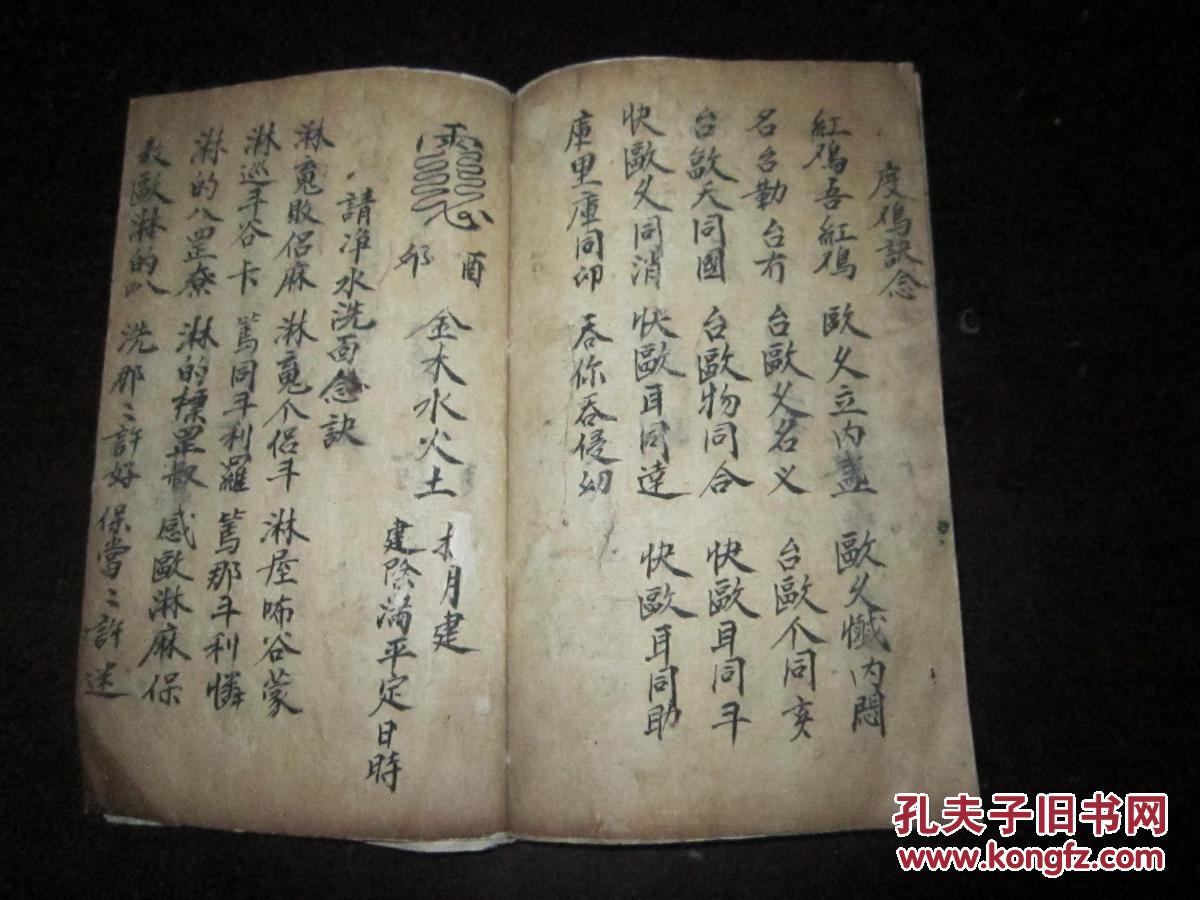 度鳮訣念
紅鳮吾紅鳮 歐父立内盡 歐父懺内悶
名名勤台冇 台歐父名义 台歐个同亥
台歐天同國 台歐物同合 快歐耳同斗
快歐父同消 快歐耳同達 快歐耳同助
庫里庫同卬 吞你吞侵幼
酉 金木水火土 未月建
卯 建除滿平定日時
請净水洗面念訣
淋寬敗侣麻 淋寬个侣斗 淋屋㖊谷蒙
淋巡斗谷卡 篤同斗利羅 篤那斗利憐
淋的八罡尞 淋的標罡叔 感歐淋麻保
敖歐淋的叭 洗那〻許好 保當〻許迷
孔夫子旧书网
www.kongfz.com